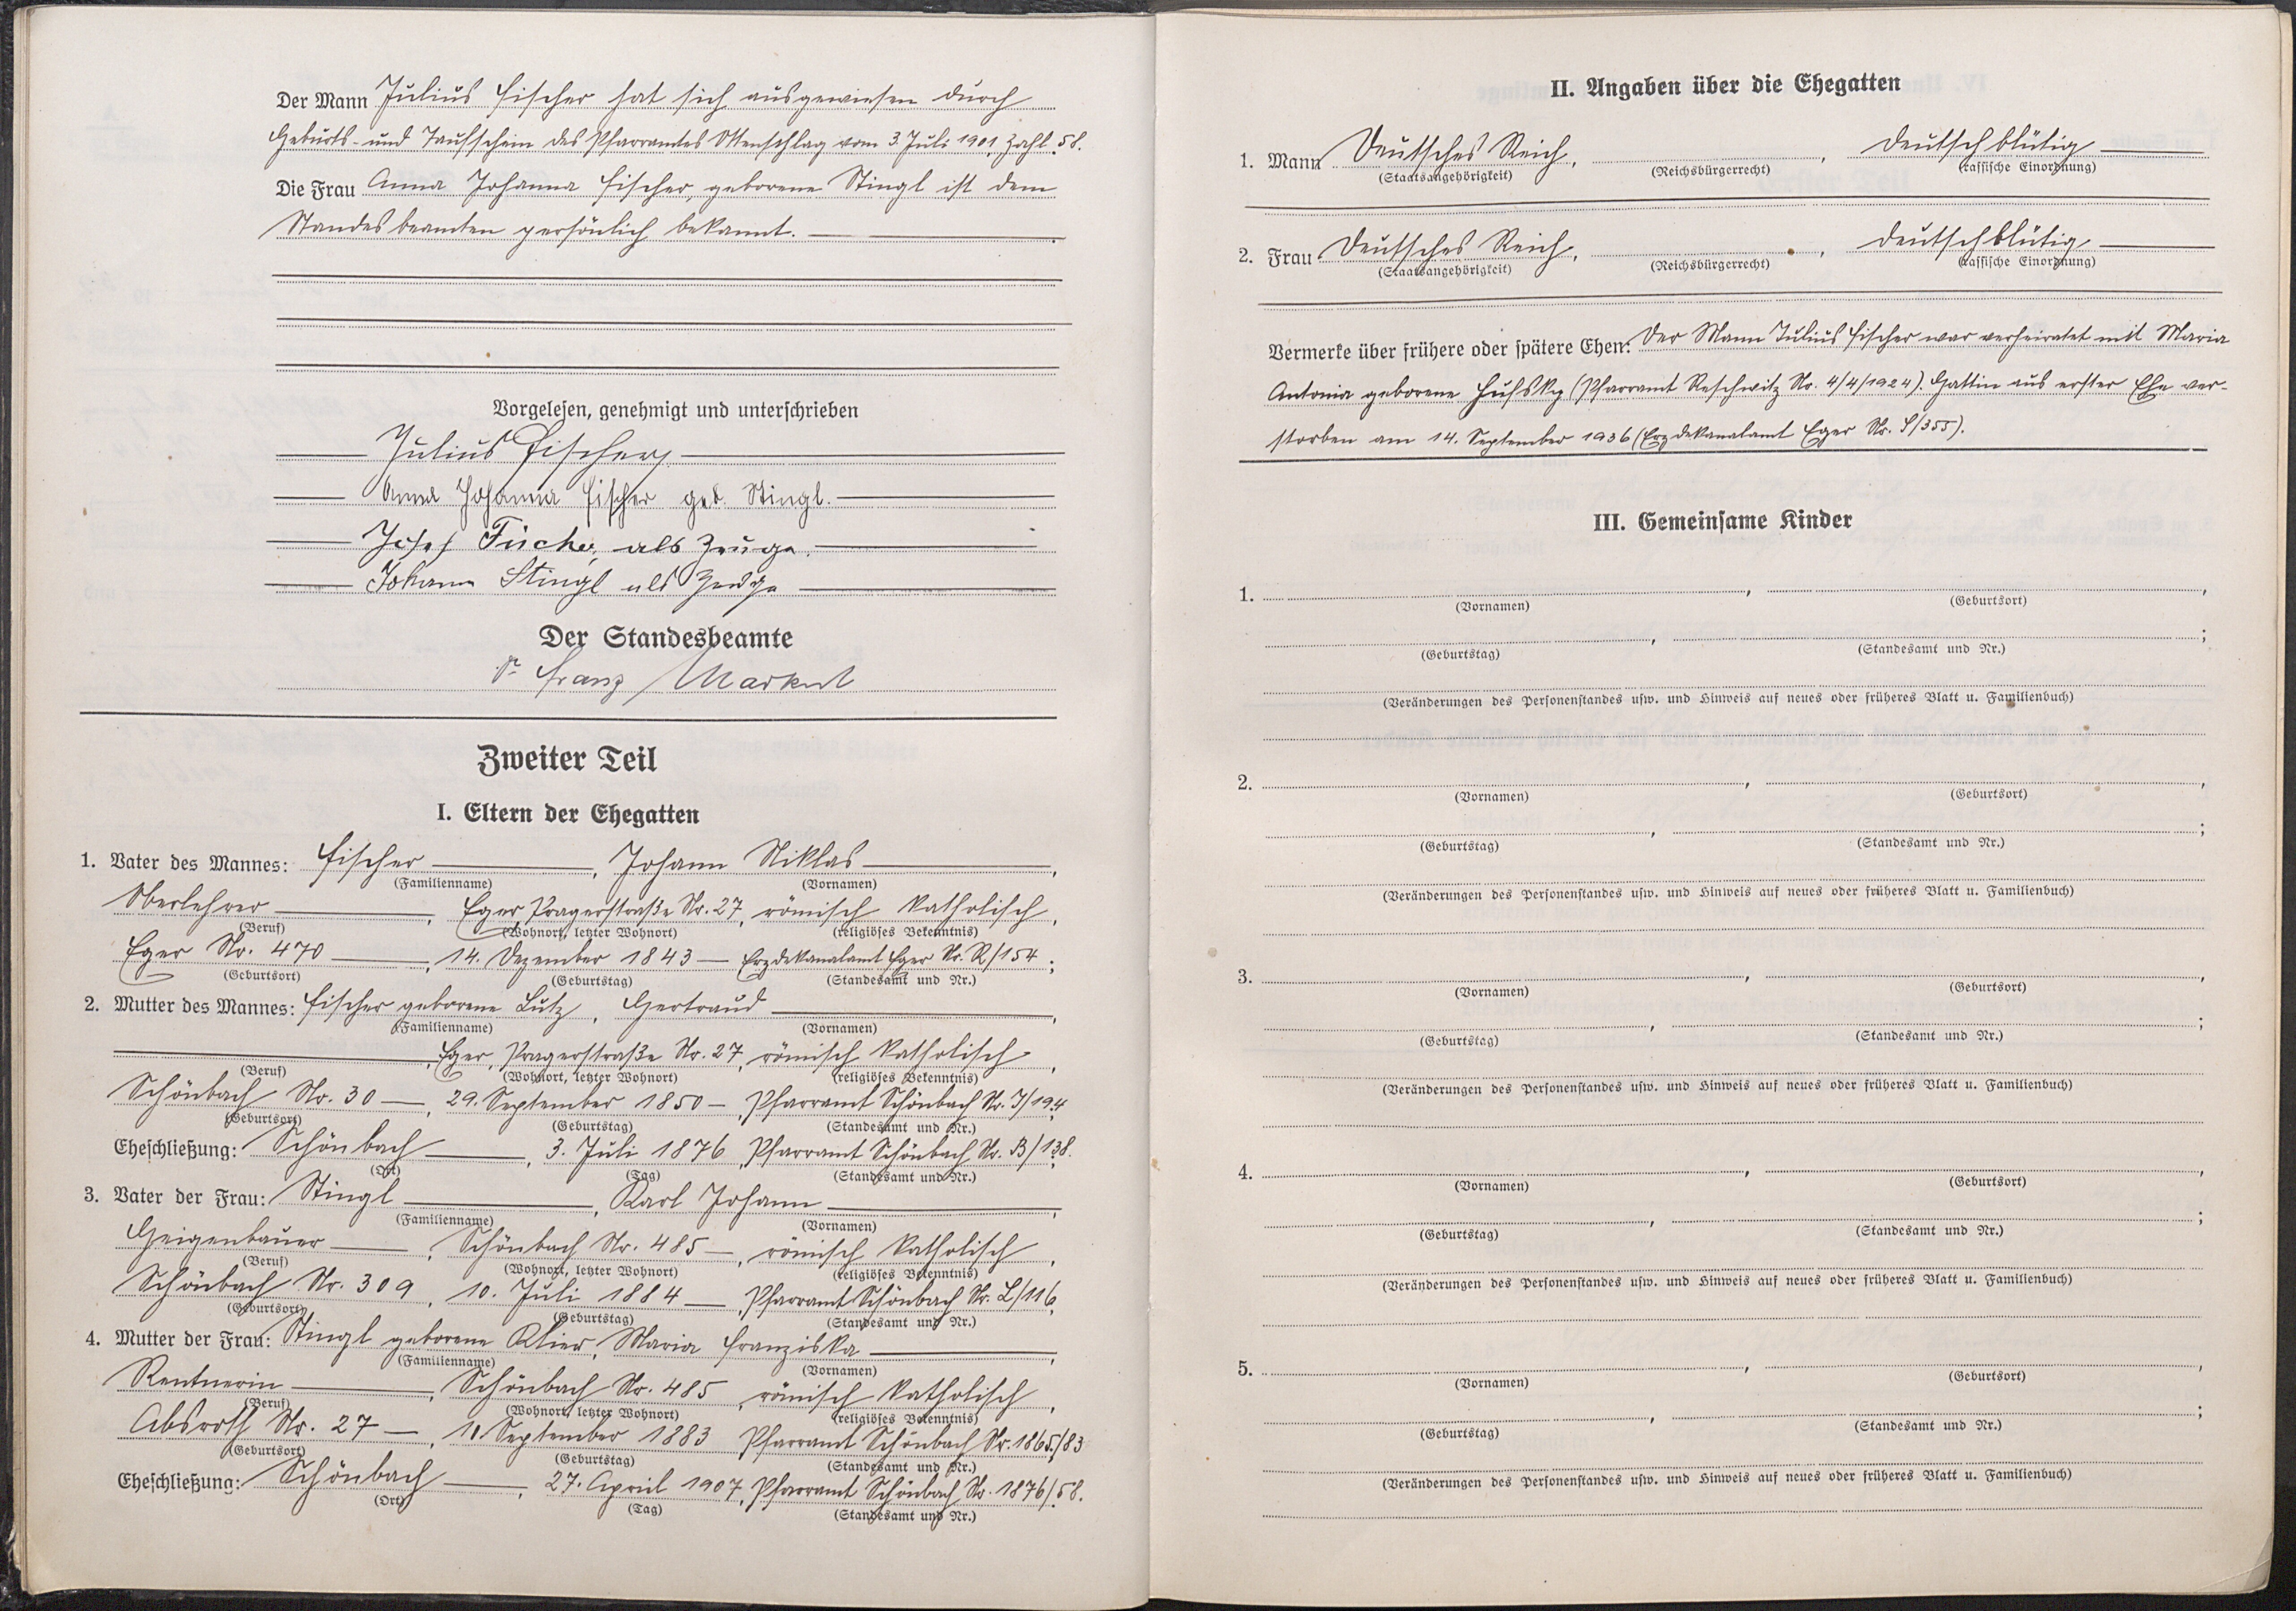 Der Mann Julius Fischer hat sich ausgewiesen durch
Geburts- und Taufschein des Pfarramtes Ottenschlag vom 3. Juli 1901, Zahl 58.
Die Frau Anna Johanna Fischer, geborene Stingl ist dem
Standesbeamten persönlich bekannt.
Vorgelesen, genehmigt und unterschrieben
Julius Fischer
Anna Johanna Fischer geb. Stingl.
Josef als Zeuge.
Johann Stingl als Zeuge
Der Standesbeamte
Franz Markert
Zweiter Teil
I. Eltern der Ehegatten
1. Vater des Mannes: Fischer, Johann Niklas,
(Familienname) (Vornamen)
Oberlehrer, Eger, Pragerstraße Nr. 27, römisch katholisch,
(Beruf) (Wohnort, letzter Wohnort) (religiöses Bekenntnis)
Eger Nr. 470, 14. Dezember 1843 — Erzdekanalamt Eger Nr. R/154;
(Geburtsort) (Geburtstag) (Standesamt und Nr.)
2. Mutter des Mannes: Fischer geborene Lutz, Gertraud,
(Familienname) (Vornamen)
, Eger, Pragerstraße Nr. 27, römisch katholisch,
(Beruf) (Wohnort, letzter Wohnort) (religiöses Bekenntnis)
Schönbach Nr. 30 —, 29. September 1850 —, Pfarramt Schönbach Nr. J/194
(Geburtsort) (Geburtstag) (Standesamt und Nr.)
Eheschließung: Schönbach, 3. Juli 1876, Pfarramt Schönbach Nr. B/138.
(Ort) (Tag) (Standesamt und Nr.)
3. Vater der Frau: Stingl, Karl Johann,
(Familienname) (Vornamen)
Geigenbauer, Schönbach Nr. 485 —, römisch katholisch,
(Beruf) (Wohnort, letzter Wohnort) (religiöses Bekenntnis)
Schönbach Nr. 309, 10. Juli 1884 —, Pfarramt Schönbach Nr. L/116,
(Geburtsort) (Geburtstag) (Standesamt und Nr.)
4. Mutter der Frau: Stingl geborene Klier, Maria Franziska,
(Familienname) (Vornamen)
Rentnerin, Schönbach Nr. 485, römisch katholisch,
(Beruf) (Wohnort, letzter Wohnort) (religiöses Bekenntnis)
Absroth Nr. 27 —, September 1883 Pfarramt Schönbach Nr. 1865/83
(Geburtsort) (Geburtstag) (Standesamt und Nr.)
Eheschließung: Schönbach, 27. April 1907, Pfarramt Schönbach Nr. 1876/58.
(Ort) (Tag) (Standesamt und Nr.)
II. Angaben über die Ehegatten
1. Mann Deutsches Reich, , deutschblütig
(Staatsangehörigkeit) (Reichsbürgerrecht) (rassische Einordnung)
2. Frau Deutsches Reich, , deutschblütig
(Staatsangehörigkeit) (Reichsbürgerrecht) (rassische Einordnung)
Vermerke über frühere oder spätere Ehen: Der Mann Julius Fischer war verheiratet mit Maria
Antonia geborene (Pfarramt Reschwitz Nr. 4/4/1924). Gattin aus erster Ehe ver-
storben am 14. September 1936 (Erzdekanalamt Eger Nr. S/355).
III. Gemeinsame Kinder
1. , ,
(Vornamen) (Geburtsort)
, ;
(Geburtstag) (Standesamt und Nr.)
(Veränderungen des Personenstandes usw. und Hinweis auf neues oder früheres Blatt u. Familienbuch)
2. , ,
(Vornamen) (Geburtsort)
, ;
(Geburtstag) (Standesamt und Nr.)
(Veränderungen des Personenstandes usw. und Hinweis auf neues oder früheres Blatt u. Familienbuch)
3. , ,
(Vornamen) (Geburtsort)
, ;
(Geburtstag) (Standesamt und Nr.)
(Veränderungen des Personenstandes usw. und Hinweis auf neues oder früheres Blatt u. Familienbuch)
4. , ,
(Vornamen) (Geburtsort)
, ;
(Geburtstag) (Standesamt und Nr.)
(Veränderungen des Personenstandes usw. und Hinweis auf neues oder früheres Blatt u. Familienbuch)
5. , ,
(Vornamen) (Geburtsort)
, ;
(Geburtstag) (Standesamt und Nr.)
(Veränderungen des Personenstandes usw. und Hinweis auf neues oder früheres Blatt u. Familienbuch)